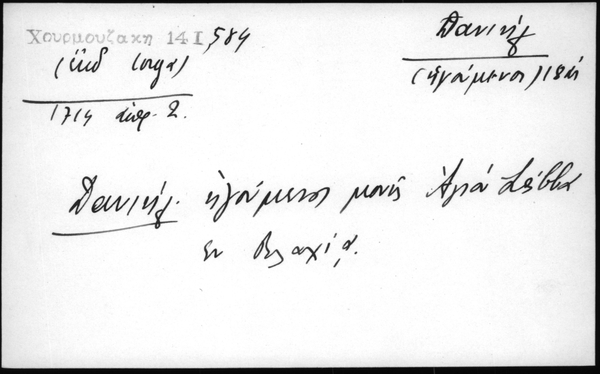 Χουρμουζακη 14 Ι, 584
(ἔκδ Iorga)
1714 ἀπρ. 2.
Δανιήλ
(ἡγούμενος) 18
Δανιήλ ἡγούμενος μονῆς Ἁγίου Σάββα
ἐν Βλαχίᾳ.